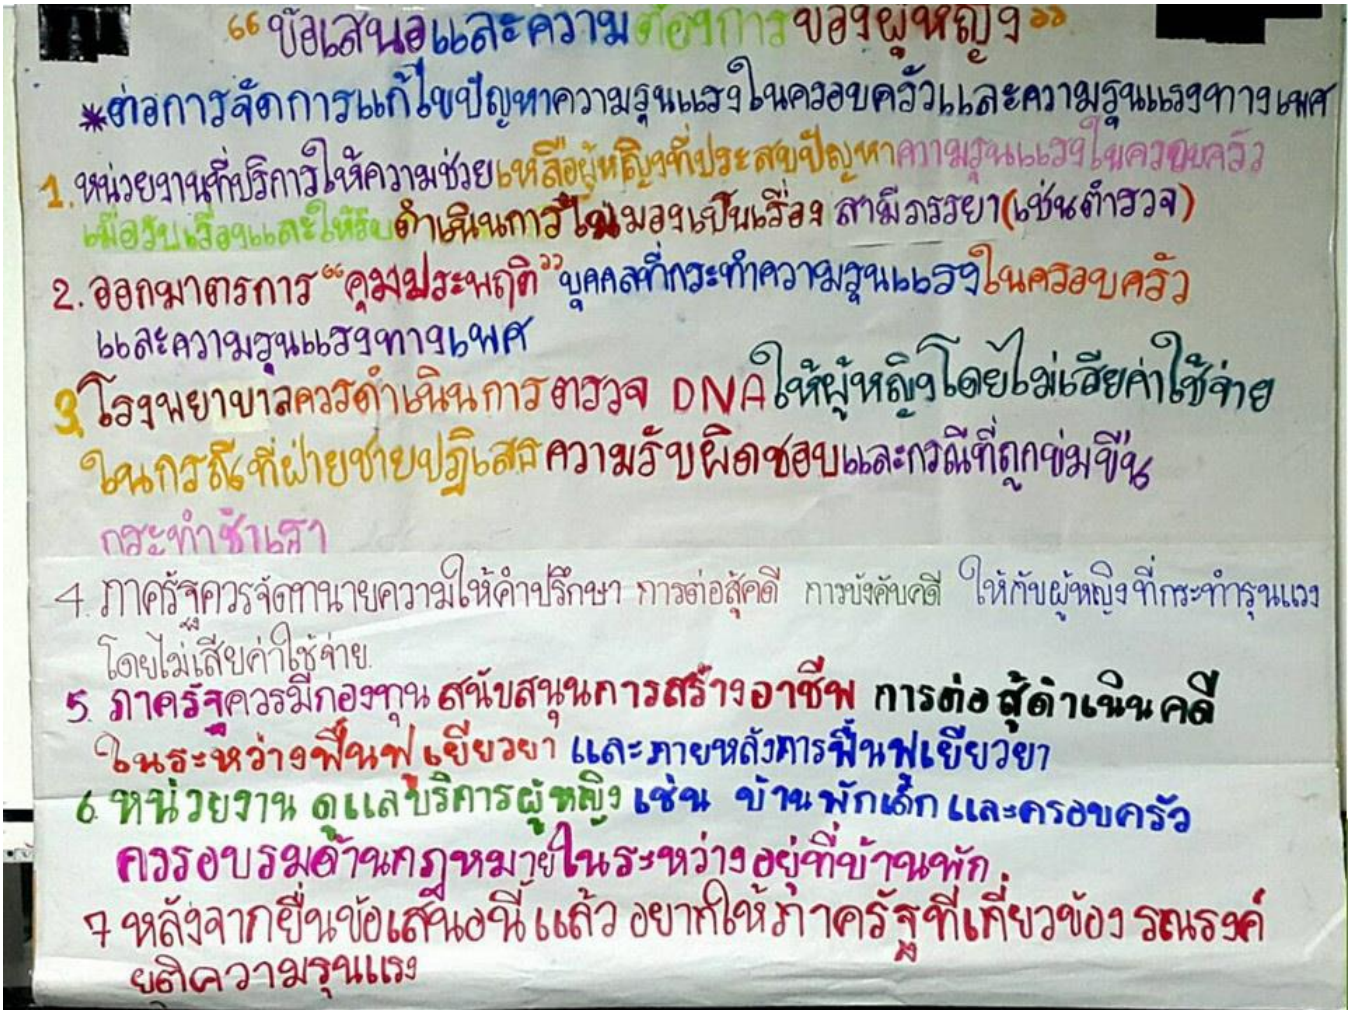 “ข้อเสนอและความต้องการของผู้หญิง”
*ต่อการจัดการแก้ไขปัญหาความรุนแรงในครอบครัวและความรุนแรงทางเพศ
1. หน่วยงานที่บริการให้ความช่วยเหลือผู้หญิงที่ประสบปัญหาความรุนแรงในครอบครัว
เมื่อรับเรื่องและให้รีบดำเนินการไม่มองเป็นเรื่อง สามีภรรยา(เช่นตำรวจ)
2. ออกมาตรการ “คุมประพฤติ” บุคคลที่กระทำความรุนแรงในครอบครัว
และความรุนแรงทางเพศ
3. โรงพยาบาลควรดำเนินการ ตรวจ DNA ให้ผู้หญิงโดยไม่เสียค่าใช้จ่าย
ในกรณีที่ฝ่ายชายปฏิเสธความรับผิดชอบและกรณีที่ถูกข่มขืน
กระทำชำเรา
4. ภาครัฐควรจัดทนายความให้คำปรึกษา การต่อสู้คดี การบังคับคดี ให้กับผู้หญิงที่กระทำรุนแรง
โดยไม่เสียค่าใช้จ่าย.
5. ภาครัฐควรมีกองทุน สนับสนุนการสร้างอาชีพ การต่อสู้ดำเนินคดี
ในระหว่างฟื้นฟูเยียวยา และภายหลังการฟื้นฟูเยียวยา
6. หน่วยงาน ดูแลบริการผู้หญิง เช่น บ้านพักเด็กและครอบครัว
ควรอบรมด้านกฎหมายในระหว่างอยู่ที่บ้านพัก
7 หลังจากยื่นข้อเสนอนี้แล้ว อยากให้ภาครัฐที่เกี่ยวข้อง รณรงค์
ยุติความรุนแรง